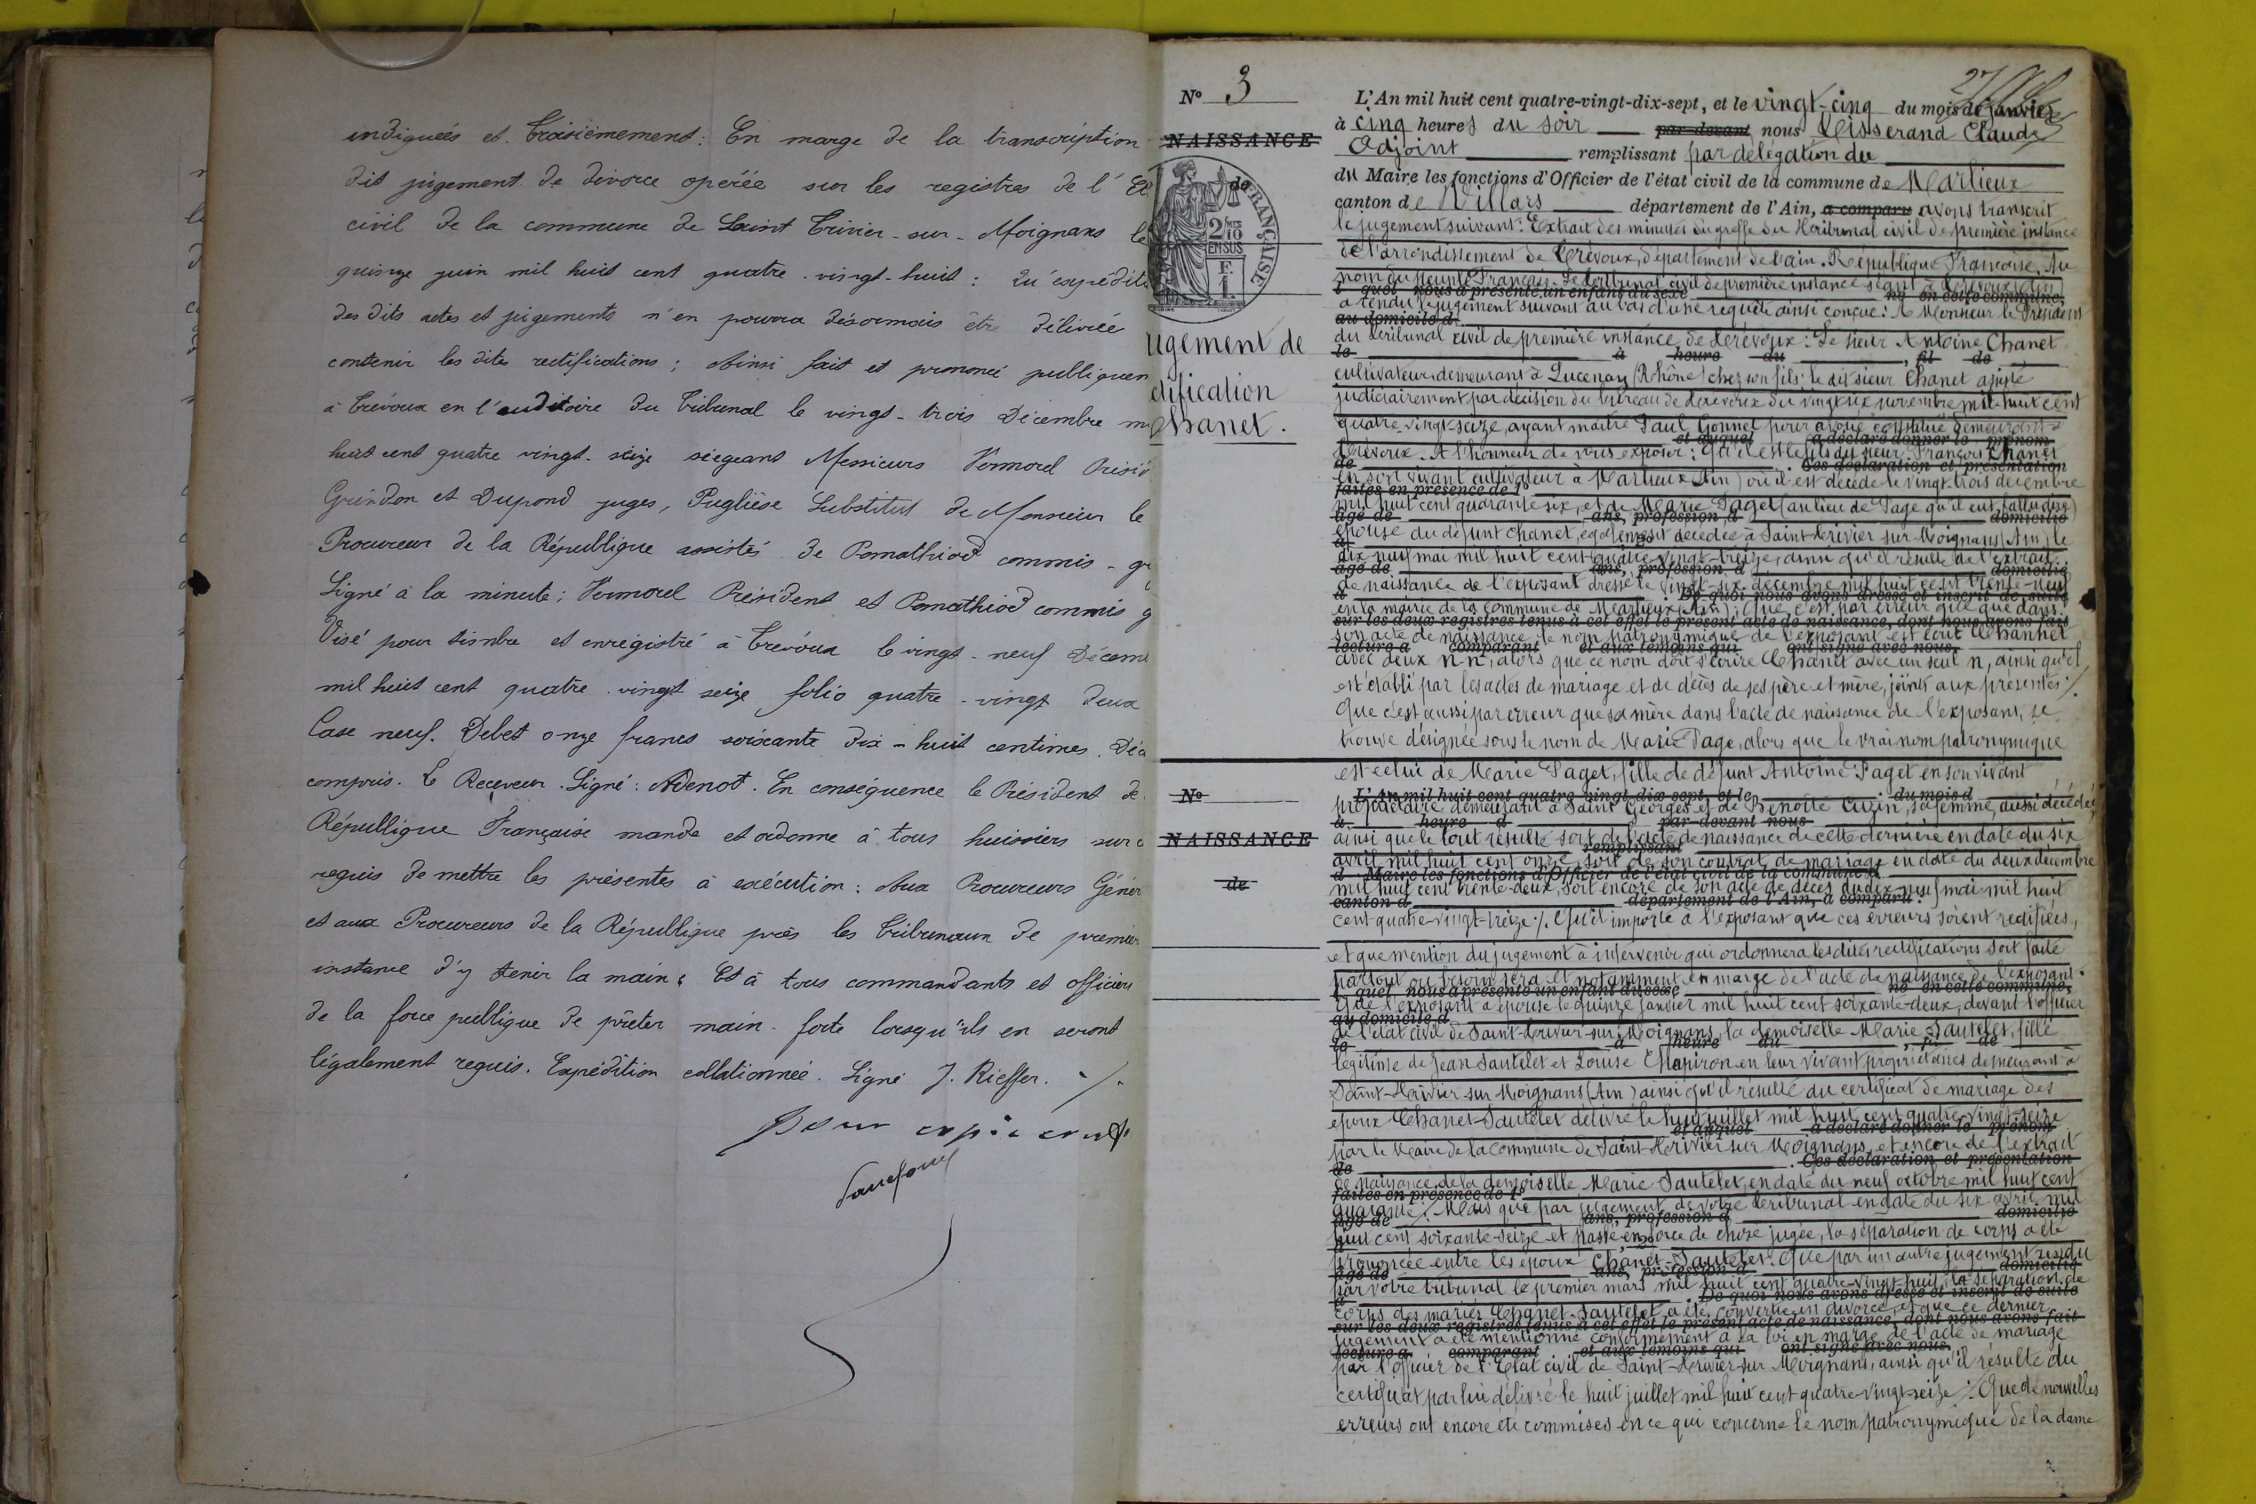 indiqueés et. Troisièmement: En marge de la transcription
dit jugement de divorce opérée sur les registres de l'
civil de la commune de Saint Trivier-sur-Moignans le
quinze juin mil huit cent quatre-vingt-huit: Qu'expédit
des dits actes et jugements n'en pourra désormais être délivrée
contenir les dites rectifications; Ainsi fait et prononcé publiquem
à Trévoux en l'auditoire du Tribunal le vingt-trois Décembre m
huit cent quatre vingt-seize siegeant Messieurs Vermorel Présid
Grindon et Dupond juges, Pugliése Substitut de Monsieur le
Procureur de la République assistés de Pomathiod commis-g
Signé à la minute: Vermorel Président et Pomathiod commis g
Visé pour timbre et enregistré à Trévoux le vingt-neuf Décem
mil huit cent quatre-vingt seize folio quatre-vingt deux
Case neuf. Debet onze francs soixante dix-huit centimes. Déc
compris. Le Receveur. Signé: Adenot. En conséquence le Président de
République Française mande et ordonne à tous huissiers sur
requis de mettre les présentes à exécution: Aux Procureurs Génér
et aux Procureurs de la République près les Tribunaux de premièr
instance d'y tenir la main; Et à tous commandants et officiers
de la force publique de prêter main-forte lorsqu'ils en seront
légalement requis. Expédition collationneé. Signé J. Rieffer. ./.
Pour copie conf
No 3
NAISSANCE
de
FRANÇAISE
2/10 EN SUS
ugement de
ctification
Chanet.
L'An mil huit cent quatre-vingt-dix-sept, et le vingt-cinq du mois de Janvier
à cinq heures du soir par-devant nous Tisserand Claude
Adjoint remplissant par délégation du
du Maire les fonctions d'Officier de l'état civil de la commune de Marlieux
canton de Villars département de l'Ain, a comparu avons transcrit
le jugement suivant: Extrait des minutes du greffe du Tribunal civil de première instance
de l'arrondissement de Trévoux, département de l'ain. République Française. Au
nom du Peuple Français. Le Tribunal civil de première instance séant à Trévoux (Ain)
l quel nous a présenté un enfant du sexe né en cette commune,
a rendu le jugement suivant au bas d'une requête ainsi conçue: A Monsieur le Président
au domicile d
du Tribunal civil de première instance de Trévoux: Le sieur Antoine Chanet
le à heure du , fil de
cultivateur demeurant à Lucenay (Rhône) chez son fils: le dit sieur Chanet assisté
judiciairement par décision du bureau de Trévoux du vingt six novembre mil-huit cent
quatre-vingt-seize, ayant maître Paul Gonnet pour avoué constitué demeurant à
et auquel a déclaré donner le prénom
Trévoux. A l'honneur de vous exposer: Qu'il est le fils du sieur François Chanet
de . Ces déclaration et présentation
en son vivant cultivateur à Marlieux (Ain) où il est décédé le vingt-trois décembre
faites en présence de 1o
mil huit cent quarante-six, et de Marie Paget (au lieu de Page qu'il eut fallu dire)
âgé de ans, profession d domicilié
épouse du défunt Chanet, également décédée à Saint-Trivier sur Moignans (Ain) le
dix neuf mai mil huit cent quatre-vingt-treize, ainsi qu'il résulte de l'extrait
âgé de ans, profession d domicilié
de naissance de l'exposant dressé le vingt-six décembre mil huit cent trente-neuf
à . De quoi nous avons dressé et inscrit de suite
en la mairie de la commune de Marlieux (Ain); Que c'est par erreur que que dans
sur les deux registres tenus à cet effet le présent acte de naissance, dont nous avons fait
son acte de naissance, le nom patronymique de l'exposant est écrit Channet
lecture à comparant et aux témoins qui ont signé avec nous.
avec deux n-n, alors que ce nom doit s'écrire Chanet avec un seul n, ainsi qu'il
est établi par les actes de mariage et de décès de ses père et mère, joints aux présentes ./.
Que c'est aussi par erreur que sa mère dans l'acte de naissance de l'exposant, se
trouve désignée sous le nom de Marie Page, alors que le vrai nom patronymique
est celui de Marie Paget, fille de défunt Antoine Paget en son vivant
No
L'An mil huit cent quatre-vingt-dix-sept, et le du mois d
propriétaire demeurant à Saint Georges et de Benoîte Cuzin, sa femme, aussi décédée,
à heure d par-devant nous
NAISSANCE
ainsi que le tout résulte soit de l'acte de naissance de cette dernière en date du six
remplissant
avril mil huit cent onze, soit de son contrat de mariage en date du deux décembre
d Maire les fonctions d'Officier de l'état civil de la commune d
de
mil huit cent trente-deux, soit encore de son acte de décès du dix-neuf mai mil huit
canton d département de l'Ain, a comparu:
cent quatre-vingt-treize ./. Qu'il importe à l'exposant que ces erreurs soient rectifiées,
et que mention du jugement à intervenir qui ordonnera les dites rectifications soit faite
partout où besoin sera et notamment en marge de l'acte de naissance de l'exposant.
l quel nous a présenté un enfant du sexe né en cette commune,
Que l'exposant a épousé le quinze janvier mil huit cent soixante-deux, devant l'officier
au domicile d
de l'état civil de Saint-Trivier-sur-Moignans, la demoiselle Marie Sautelet, fille
le à heure du , fil de
légitime de Jean Sautelet et Louise Chapiron en leur vivant propriétaires demeurant à
Saint-Trivier sur Moignans (Ain) ainsi qu'il résulte du certificat de mariage des
époux Chanet-Sautelet délivré le huit juillet mil huit cent quatre-vingt-seize
et auquel a déclaré donner le prénom
par le Maire de la commune de Saint-Trivier sur Moignans, et encore de l'extrait
de . Ces déclaration et présentation
de naissance de la demoiselle Marie Sautelet, en date du neuf octobre mil huit cent
faites en présence de 1o
quarante ./. Mais que par jugement de votre Tribunal en date du six avril mil
âgé de ans, profession d domicilié
huit cent soixante-seize et passé en force de chose jugée, la séparation de corps a été
prononcée entre les époux Chanet-Sautelet. Que par un autre jugement rendu
âgé de ans, profession d domicilié
par votre tribunal le premier mars mil huit cent quatre-vingt-huit, la séparation de
à . De quoi nous avons dressé et inscrit de suite
corps des mariés Chanet-Sautelet a été convertie en divorce, et que ce dernier
sur les deux registres tenus à cet effet le présent acte de naissance, dont nous avons fait
jugement a été mentionné conformément à la loi en marge de l'acte de mariage
lecture à comparant et aux témoins qui ont signé avec nous.
par l'officier de l'Etat civil de Saint-Trivier-sur Moignans, ainsi qu'il résulte du
certificat par lui délivré le huit juillet mil huit cent quatre-vingt-seize ./. Que de nouvelles
erreurs ont encore été commises en ce qui concerne le nom patronymique de la dame